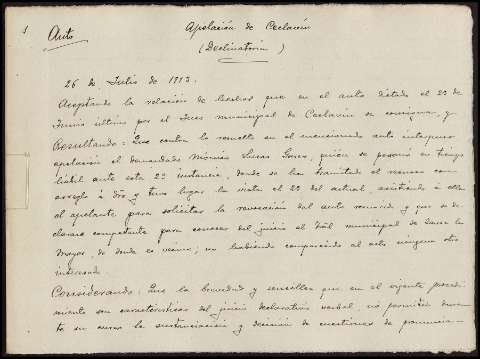 1
Auto
Apelación de Ceclavín
(Declinatoria)
26 de Julio de 1913.
Aceptando la relación de hechos que en el auto dictado el 20 de
Junio último por el Juez municipal de Ceclavín se consigna, y
Resultando: Que contra lo resuelto en el mencionado auto interpuso
apelación el demandado Moisés Lucas, quien se personó en tiempo
hábil ante esta 2ª instancia, donde se ha tramitado el recurso con
arreglo á dro y tuvo lugar la vista el 20 del actual, asistiendo á ella
el apelante para solicitar la revocación del auto recurrido y que se de-
clarara competente para conocer del juicio al Tbal municipal de Zarza la
Mayor, de donde es vecino; no habiendo comparecido al acto ningún otro
interesado.
Considerando: Que la brevedad y sencillez que en el vigente procedi-
miento son características del juicio declarativo verbal, no permiten duran-
te su curso la sustanciación y decisión de cuestiones de pronuncia-